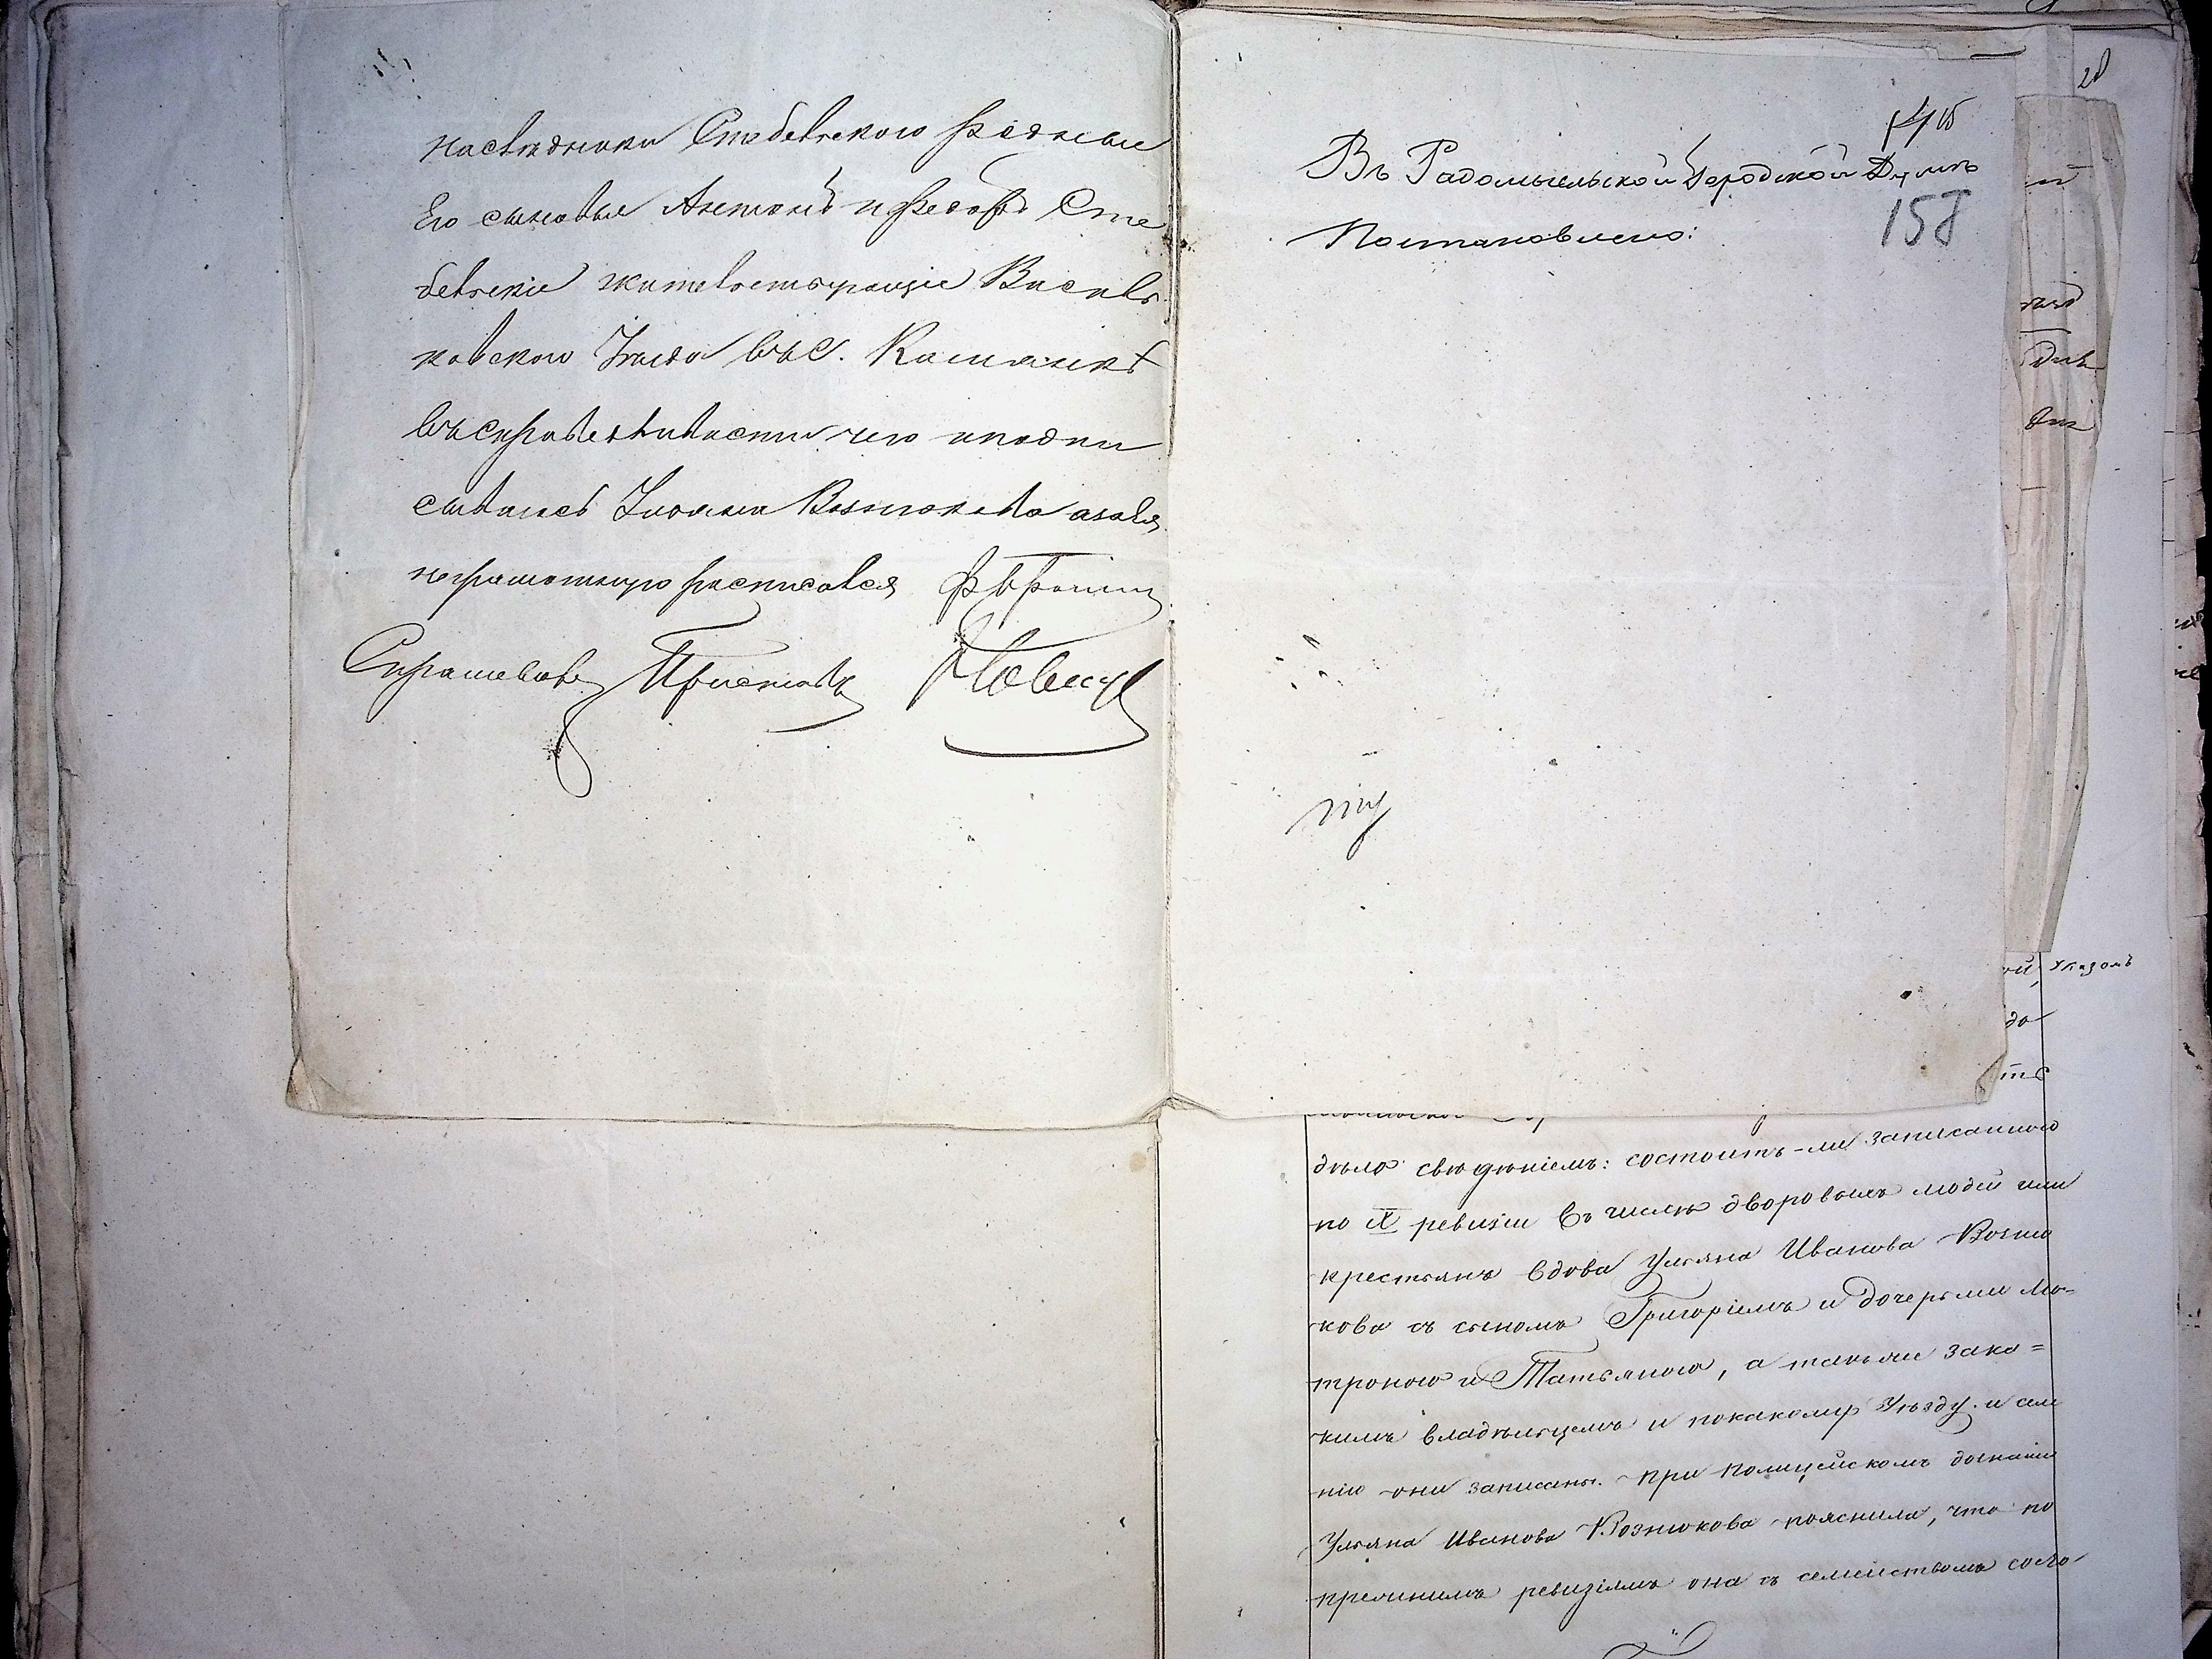 наследники Стебельского родные
Его сыновья Антонъ и Федоръ Сте
бельскіе жительствующіе Василь
ковского Уезда въ с. Кашанкѣ
въ справедливости чего и подпи
сывалась Ульяна Вознюкова а за нея
неграмотную расписался
Спрашивалъ Приставъ
Въ Радомысльской Городской Думѣ
Постановлено:
158
28
Указомъ
дѣло свѣдѣніемъ: состоитъ-ли записанною
по IX ревизіи въ числѣ дворовыхъ людей или
крестьянъ вдова Ульяна Иванова Возню
кова съ сыномъ Григоріемъ и дочерьми Мо=
троною и Татьяною, а также за ка=
кимъ владѣльцемъ и по какому Уѣзду и име
нію они записаны. При полицейскомъ дознаніи
Ульяна Иванова Вознюкова пояснила, что по
прежнимъ ревизіямъ она съ семействомъ состо